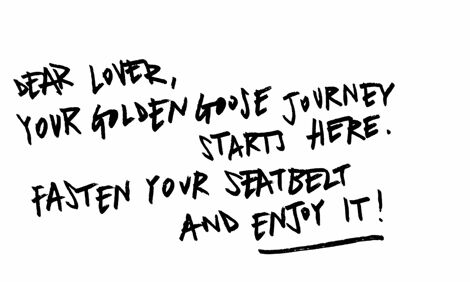 DEAR LOVER,
YOUR GOLDEN GOOSE JOURNEY
STARTS HERE.
FASTEN YOUR SEATBELT
AND ENJOY IT!